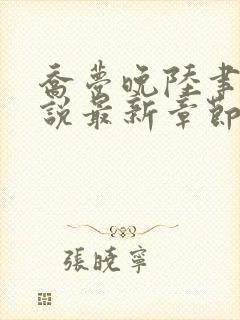 喬夢晚陸書
說最新章節
張曉寧